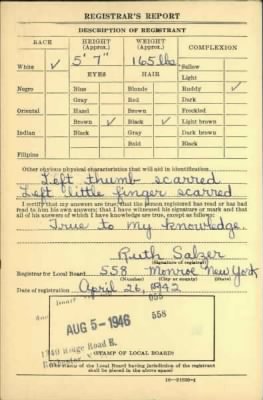 REGISTRAR'S REPORT
DESCRIPTION OF REGISTRANT
RACE HEIGHT (Approx.) WEIGHT (Approx.) COMPLEXION
White ✓ 5' 7" 165 lbs Sallow
EYES HAIR Light
Negro Blue Blonde Ruddy ✓
Gray Red Dark
Oriental Hazel Brown Freckled
Brown ✓ Black ✓ Light brown
Indian Black Gray Dark brown
Bald Black
Filipino
Other obvious physical characteristics that will aid in identification
Left thumb scarred
Left little finger scarred
I certify that my answers are true; that the person registered has read or has had
read to him his own answers; that I have witnessed his signature or mark and that
all of his answers of which I have knowledge are true, except as follows:
True to my knowledge.
Ruth Salzer
(Signature of registrar)
Registrar for Local Board 558 Monroe New York
(Number) (City or county) (State)
Date of registration April 26, 1942
558
AUG 5-1946
Ridge Road
(STAMP OF LOCAL BOARD)
(The stamp of the Local Board having jurisdiction of the registrant
shall be placed in the above space)